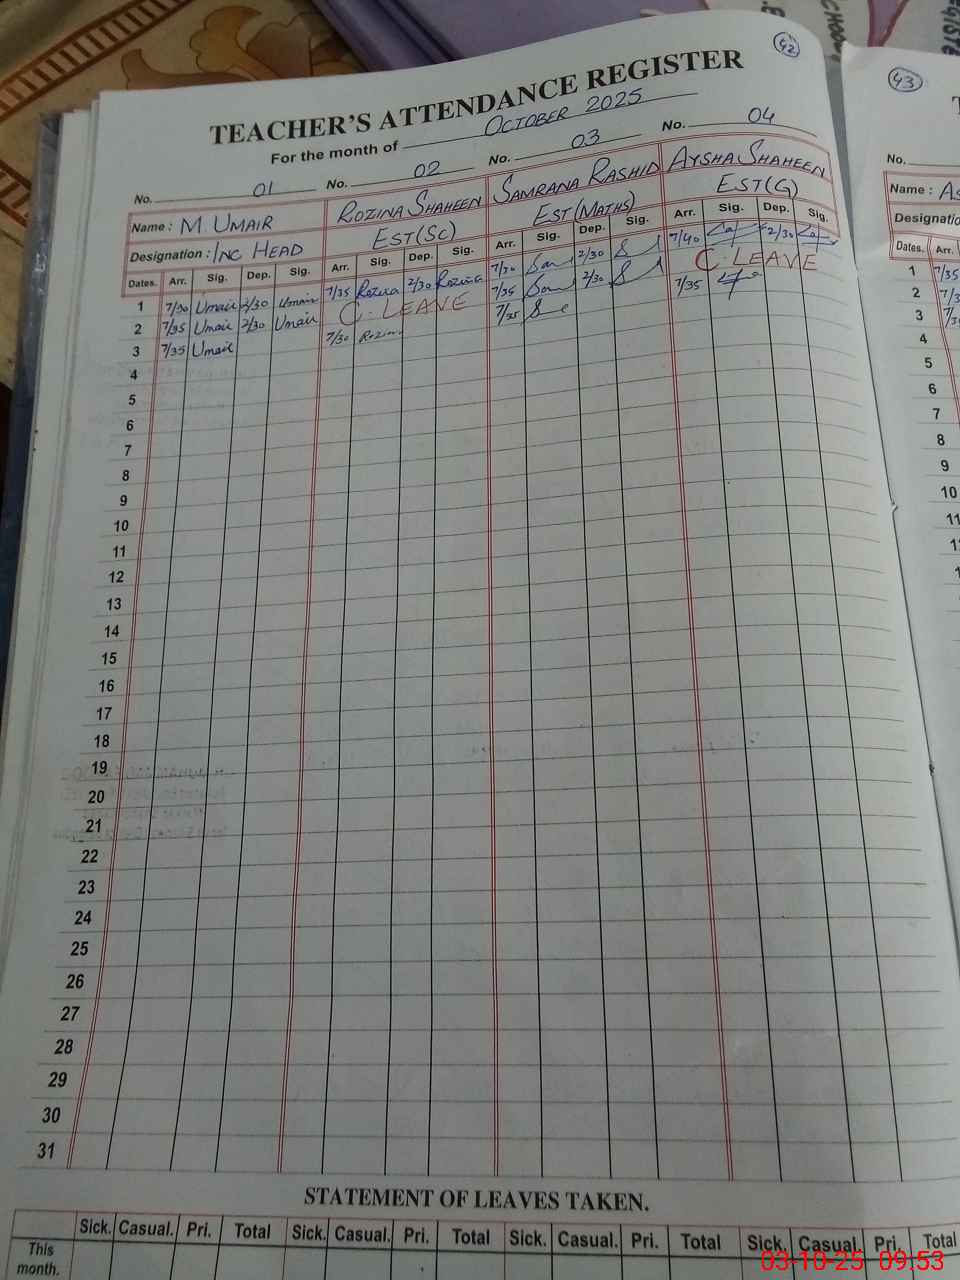 42
TEACHER'S ATTENDANCE REGISTER
For the month of OCTOBER 2025
No. 01 No. 02 No. 03 No. 04
Name : M. UMAIR ROZINA SHAHEEN SAMRANA RASHID AYSHA SHAHEEN
Designation : INC HEAD EST(SC) EST(MATHS) EST(G)
Dates. Arr. Sig. Dep. Sig. Arr. Sig. Dep. Sig. Arr. Sig. Dep. Sig. Arr. Sig. Dep. Sig.
1 7/30 Umair 2/30 Umair 7/35 Rozina 2/30 Rozina 7/30 2/30 7/40 2/30
2 7/35 Umair 2/30 Umair C. LEAVE 7/35 2/30 C. LEAVE
3 7/35 Umair 7/30 Rozina 7/35 7/35
4
5
6
7
8
9
10
11
12
13
14
15
16
17
18
19
20
21
22
23
24
25
26
27
28
29
30
31
STATEMENT OF LEAVES TAKEN.
Sick. Casual. Pri. Total Sick. Casual. Pri. Total Sick. Casual. Pri. Total Sick. Casual. Pri. Total
This month.
43
No.
Name : As
Designatio
Dates. Arr.
1 7/35
2
3
4
5
6
7
8
9
10
11
03-10-25 09:53